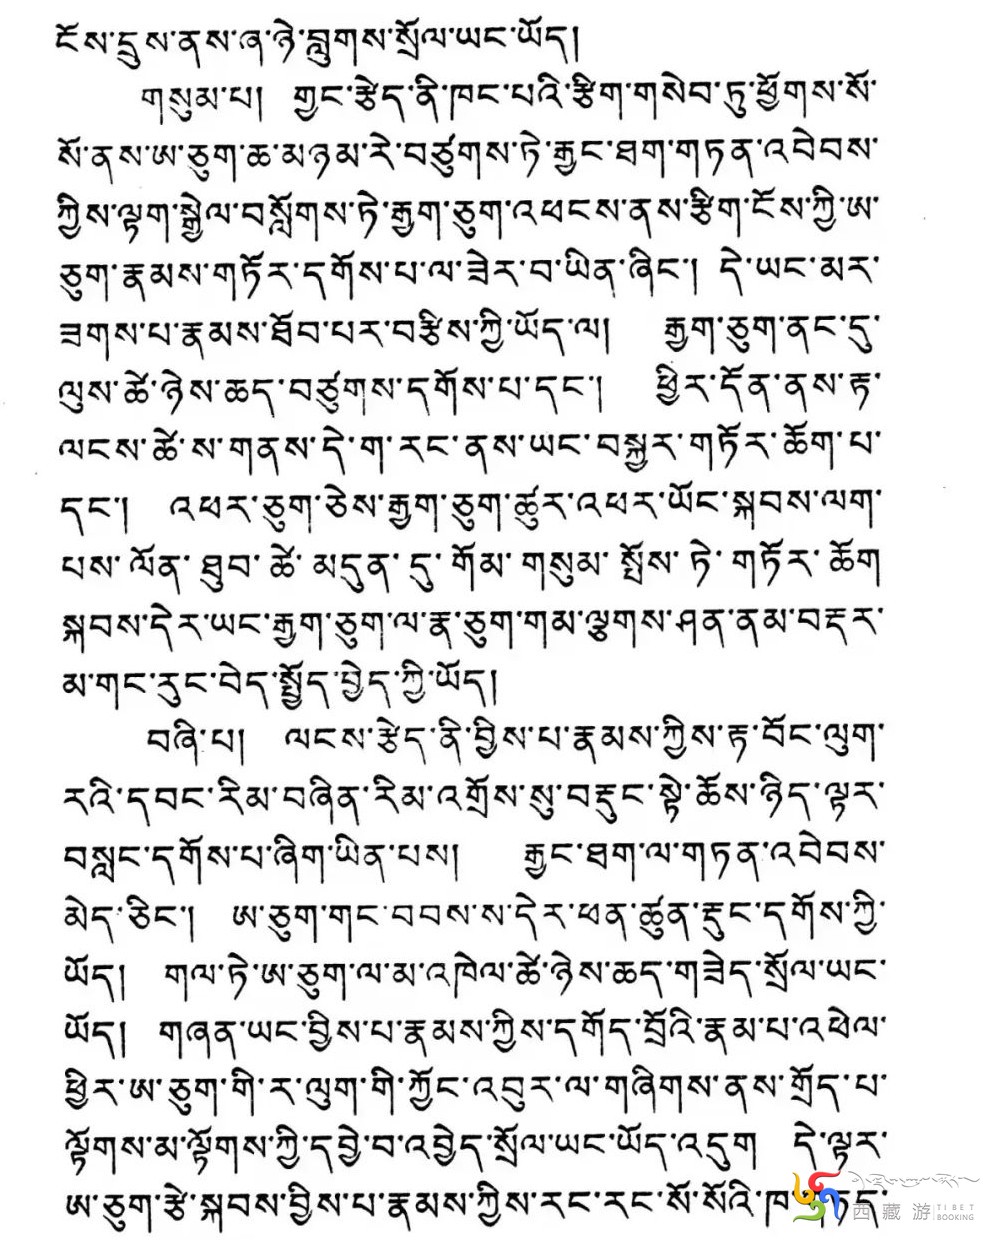 ངོས་དྲུས་ནས་ཞ་ཉེ་བླུགས་སྲོལ་ཡང་ཡོད།
གསུམ་པ། གྱང་རྩེད་ནི་ཁང་པའི་རྩིག་གསེབ་ཏུ་ཕྱོགས་སོ་
སོ་ནས་ཨ་ཅུག་ཆ་མཉམ་རེ་བཙུགས་ཏེ་རྒྱང་ཐག་གཏན་འབེབས་
ཀྱིས་ལྟག་སྒྱེལ་བསློགས་ཏེ་རྒྱག་ཅུག་འཕངས་ནས་རྩིག་ངོས་ཀྱི་ཨ་
ཅུག་རྣམས་གཏོར་དགོས་པ་ལ་ཟེར་བ་ཡིན་ཞིང་། དེ་ཡང་མར་
ཟགས་པ་རྣམས་ཐོབ་པར་བརྩིས་ཀྱི་ཡོད་ལ། རྒྱག་ཅུག་ནང་དུ་
ལུས་ཚེ་ཉེས་ཆད་བཙུགས་དགོས་པ་དང་། ཕྱིར་དོན་ནས་རྟ་
ལངས་ཚེ་ས་གནས་དེ་ག་རང་ནས་ཡང་བསྐྱར་གཏོར་ཆོག་པ་
དང་། འཕར་ཅུག་ཅེས་རྒྱག་ཅུག་ཚུར་འཕར་ཡོང་སྐབས་ལག་
པས་ལོན་ཐུབ་ཚེ་མདུན་དུ་གོམ་གསུམ་སྤོས་ཏེ་གཏོར་ཆོག
སྐབས་དེར་ཡང་རྒྱག་ཅུག་ལ་རྣ་ཅུག་གམ་ལྕགས་ཤན་ནམ་བརྡར་
མ་གང་རུང་བེད་སྤྱོད་བྱེད་ཀྱི་ཡོད།
བཞི་པ། ལངས་རྩེད་ནི་བྱིས་པ་རྣམས་ཀྱིས་རྟ་བོང་ལུག་
རའི་དབང་རིམ་བཞིན་རིམ་འགྲོས་སུ་བརྡུང་སྟེ་ཆོས་ཉིད་ལྟར་
བསླང་དགོས་པ་ཞིག་ཡིན་པས། རྒྱང་ཐག་ལ་གཏན་འབེབས་
མེད་ཅིང་། ཨ་ཅུག་གང་བབས་ས་དེར་ཕན་ཚུན་རྡུང་དགོས་ཀྱི་
ཡོད། གལ་ཏེ་ཨ་ཅུག་ལ་མ་འཁེལ་ཚེ་ཉེས་ཆད་གཟེད་སྲོལ་ཡང་
ཡོད། གཞན་ཡང་བྱིས་པ་རྣམས་ཀྱིས་དགོད་བྲོའི་རྣམ་པ་འཕེལ་
ཕྱིར་ཨ་ཅུག་གི་ར་ལུག་གི་ཀྱོང་འབུར་ལ་གཞིགས་ནས་གྲོད་པ་
ལྟོགས་མ་ལྟོགས་ཀྱི་དབྱེ་བ་འབྱེད་སྲོལ་ཡང་ཡོད་འདུག དེ་ལྟར་
ཨ་ཅུག་རྩེ་སྐབས་བྱིས་པ་རྣམས་ཀྱིས་རང་རང་སོ་སོའི་ཁ་
西藏游 TIBET BOOKING